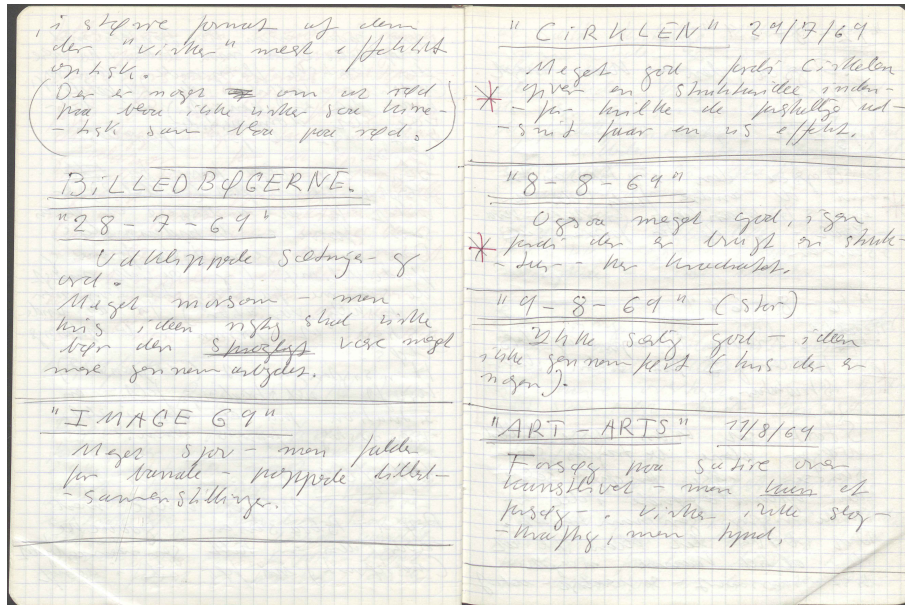 i større format af dem
der "virker" mest effektfuldt
optisk.
(Der er noget om at rød
paa blaa ikke virker saa kine-
-tisk som blaa paa rød.)
BILLEDBØGERNE.
"28-7-69"
Udklippede sætninger og
ord.
Meget morsom - men
hvis ideen rigtig skal virke
bør den sprogligt være meget
mere gennemarbejdet.
"IMAGE 69"
Meget sjov - men falder
for banale - poppede billed-
-sammenstillinger.
"CIRKLEN" 29/7/69
Meget god fordi Cirkelen
giver en strukturidee inden-
-for hvilke de forskellige ud-
-snit faar en vis effekt.
"8-8-69"
Ogsaa meget god, igen
fordi der er brugt en struk-
-tur - her kvadratet.
"9-8-69" (stor)
Ikke særlig god - ideen
ikke gennemført (hvis der er
nogen).
"ART-ARTS" 11/8/69
Forsøg paa satire over
kunstlivet - men kun et
forsøg - virker ikke slag-
-kraftig, men tynd.